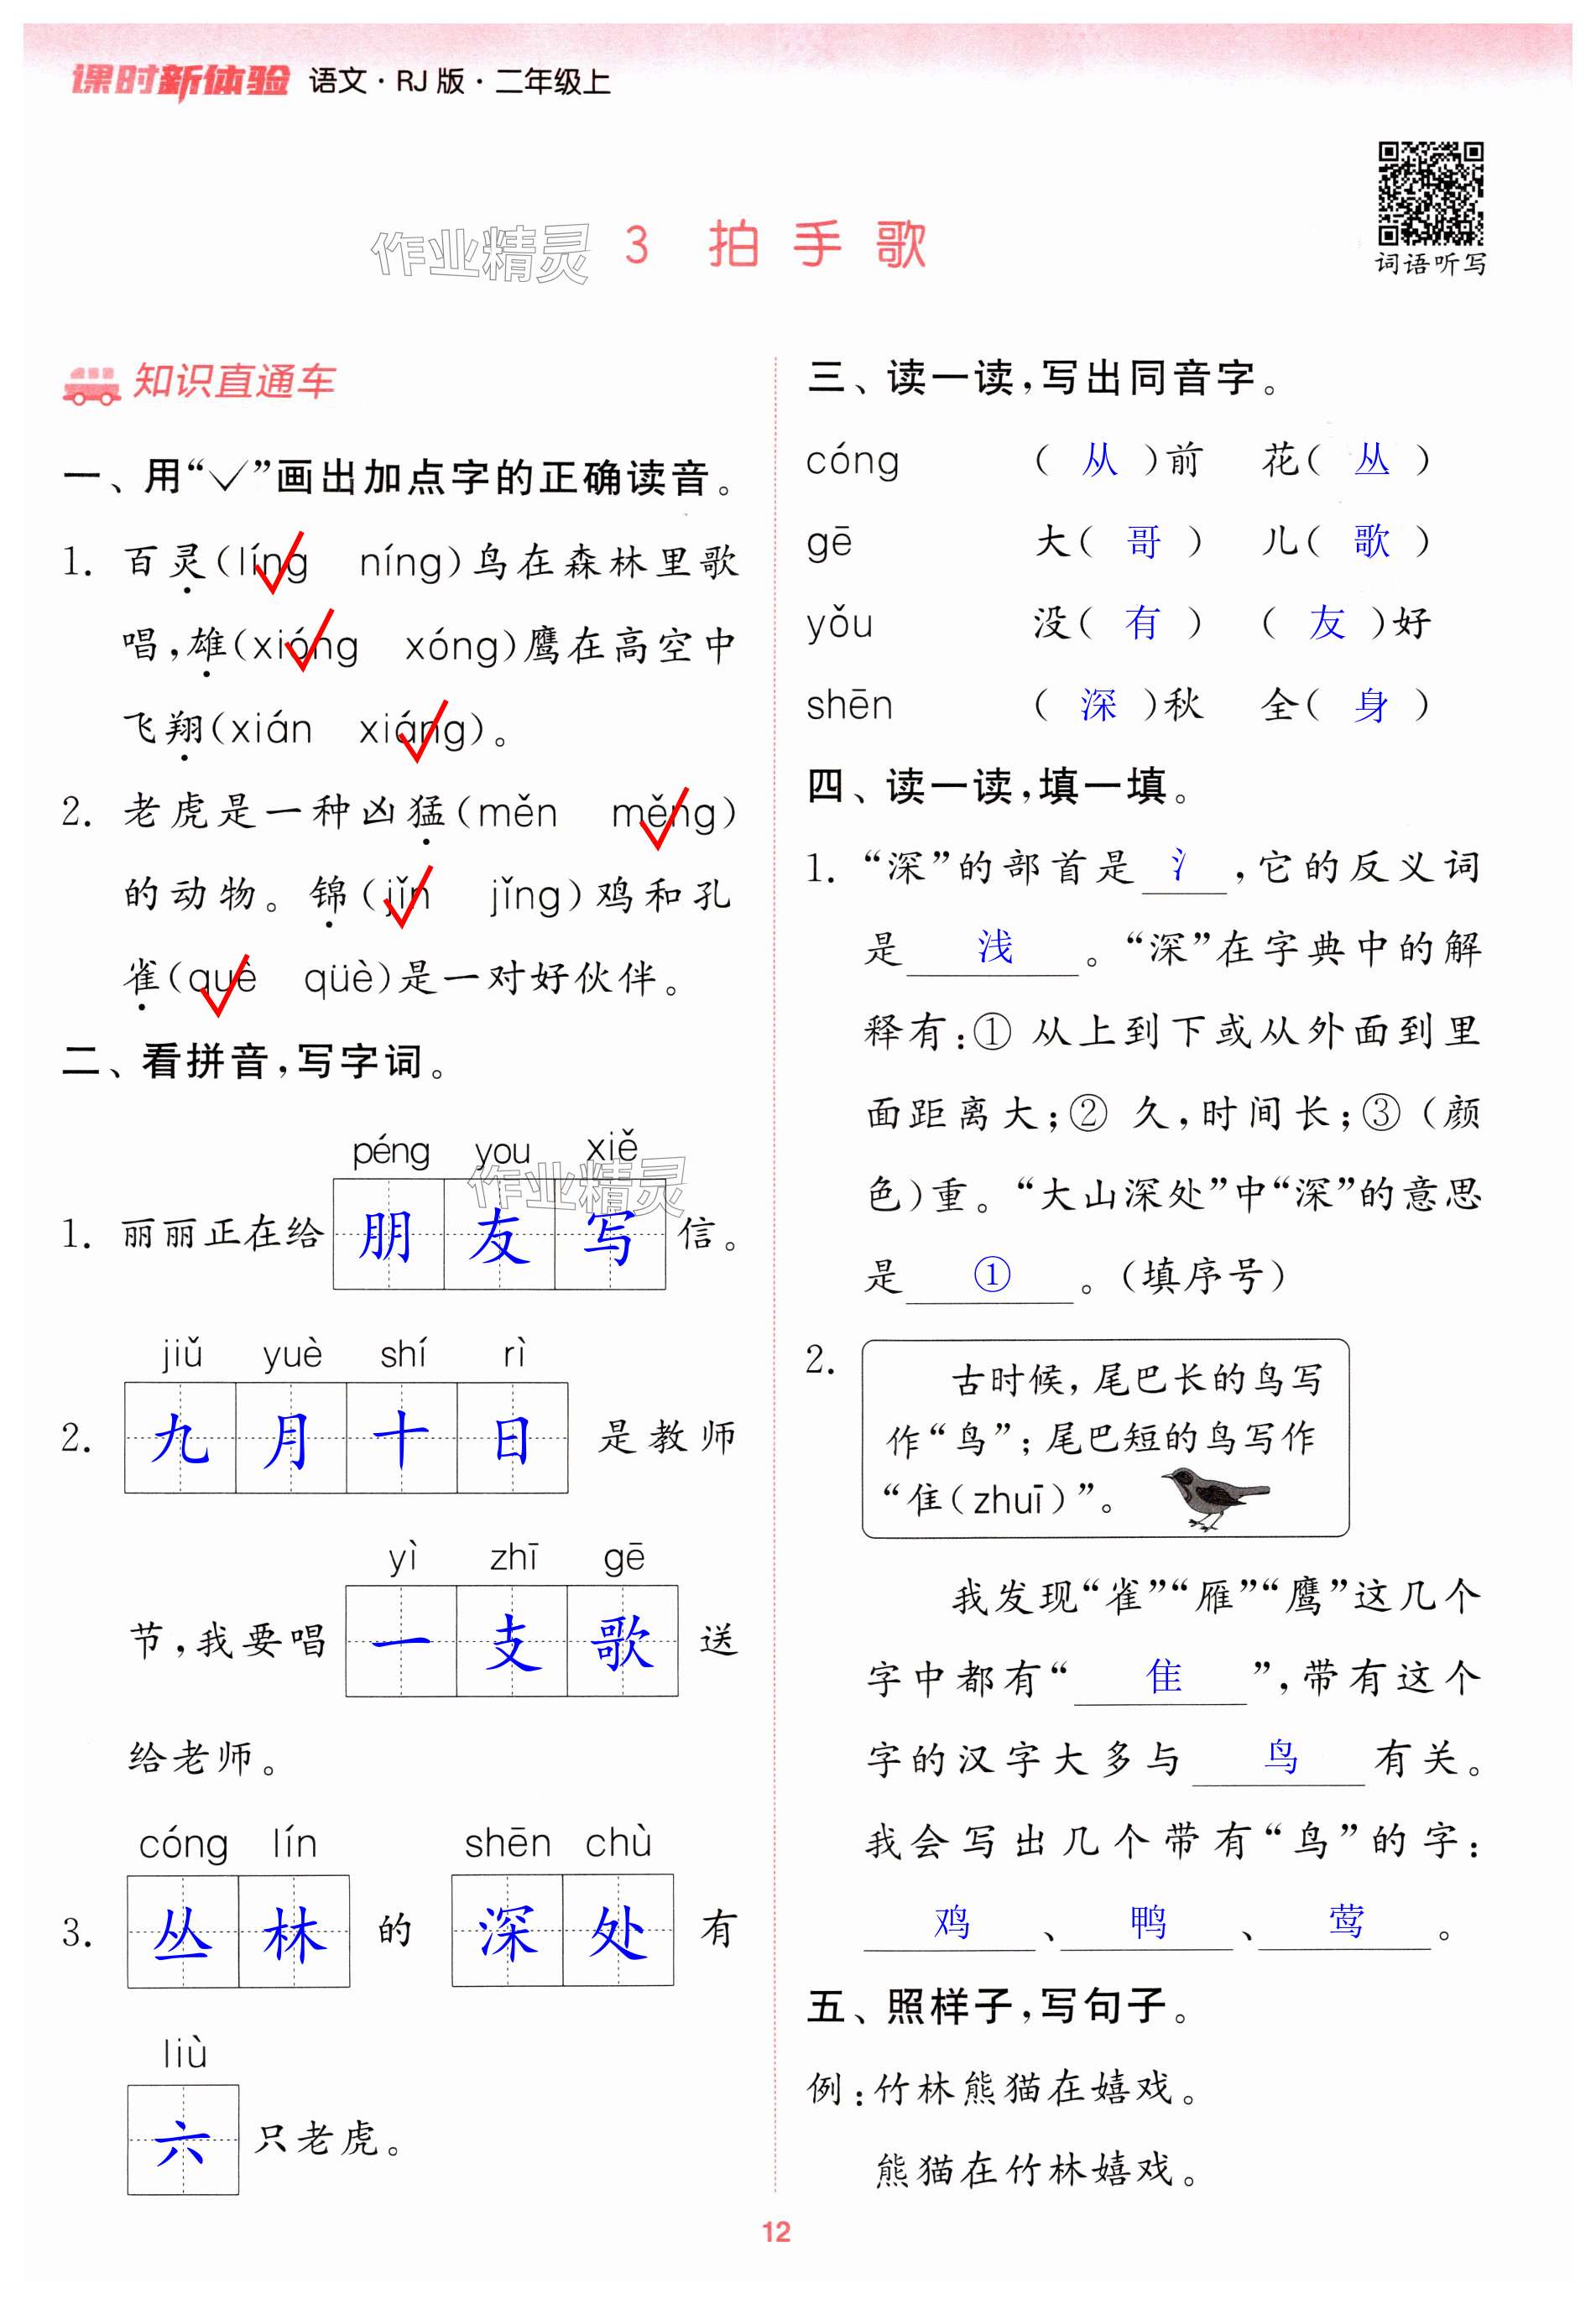 课时新体验 语文·RJ版·二年级上
词语听写
作业精灵
3 拍手歌
知识直通车
一、用“✓”画出加点字的正确读音。
1. 百灵(líng níng)鸟在森林里歌
唱,雄(xióng xóng)鹰在高空中
飞翔(xián xiáng)。
2. 老虎是一种凶猛(měn měng)
的动物。锦(jǐn jǐng)鸡和孔
雀(què qüè)是一对好伙伴。
二、看拼音,写字词。
péng you xiě
作业精灵
1. 丽丽正在给 朋 友 写 信。
jiǔ yuè shí rì
2. 九 月 十 日 是教师
yì zhī gē
节,我要唱 一 支 歌 送
给老师。
cóng lín shēn chù
3. 丛 林 的 深 处 有
liù
六 只老虎。
三、读一读,写出同音字。
cóng ( 从 )前 花( 丛 )
gē 大( 哥 ) 儿( 歌 )
yǒu 没( 有 ) ( 友 )好
shēn ( 深 )秋 全( 身 )
四、读一读,填一填。
1. “深”的部首是 氵 ,它的反义词
是 浅 。“深”在字典中的解
释有:① 从上到下或从外面到里
面距离大;② 久,时间长;③ (颜
色)重。“大山深处”中“深”的意思
是 ① 。(填序号)
2. 古时候,尾巴长的鸟写
作“鸟”;尾巴短的鸟写作
“隹(zhuī)”。
我发现“雀”“雁”“鹰”这几个
字中都有“ 隹 ”,带有这个
字的汉字大多与 鸟 有关。
我会写出几个带有“鸟”的字:
鸡 、 鸭 、 莺 。
五、照样子,写句子。
例:竹林熊猫在嬉戏。
熊猫在竹林嬉戏。
12